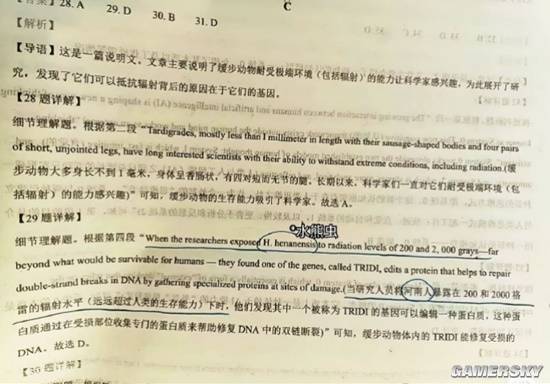 28. A 29. D 30. B 31. D
C
【解析】
【导语】这是一篇说明文。文章主要说明了缓步动物耐受极端环境（包括辐射）的能力让科学家感兴趣，为此展开了研
究，发现了它们可以抵抗辐射背后的原因在于它们的基因。
【28 题详解】
细节理解题。根据第二段“Tardigrades, mostly less than 1 millimeter in length with their sausage-shaped bodies and four pairs
of short, unjointed legs, have long interested scientists with their ability to withstand extreme conditions, including radiation.(缓
步动物大多身长不到 1 毫米，身体呈香肠状，有四对短而无节的腿，长期以来，科学家们一直对它们耐受极端环境（包
括辐射）的能力感兴趣)”可知，缓步动物的生存能力吸引了科学家。故选 A。
【29 题详解】
*水熊虫
细节理解题。根据第四段“When the researchers exposed H. henanensis to radiation levels of 200 and 2, 000 grays—far
beyond what would be survivable for humans — they found one of the genes, called TRIDI, edits a protein that helps to repair
double-strand breaks in DNA by gathering specialized proteins at sites of damage.(当研究人员将河南人暴露在 200 和2000 格
雷的辐射水平（远远超过人类的生存能力）下时，他们发现其中一个被称为 TRIDI 的基因可以编辑一种蛋白质，这种蛋
白质通过在受损部位收集专门的蛋白质来帮助修复 DNA 中的双链断裂)”可知，缓步动物体内的 TRIDI 能修复受损的
DNA。故选 D。
【30 题详解】
GAMERSKY